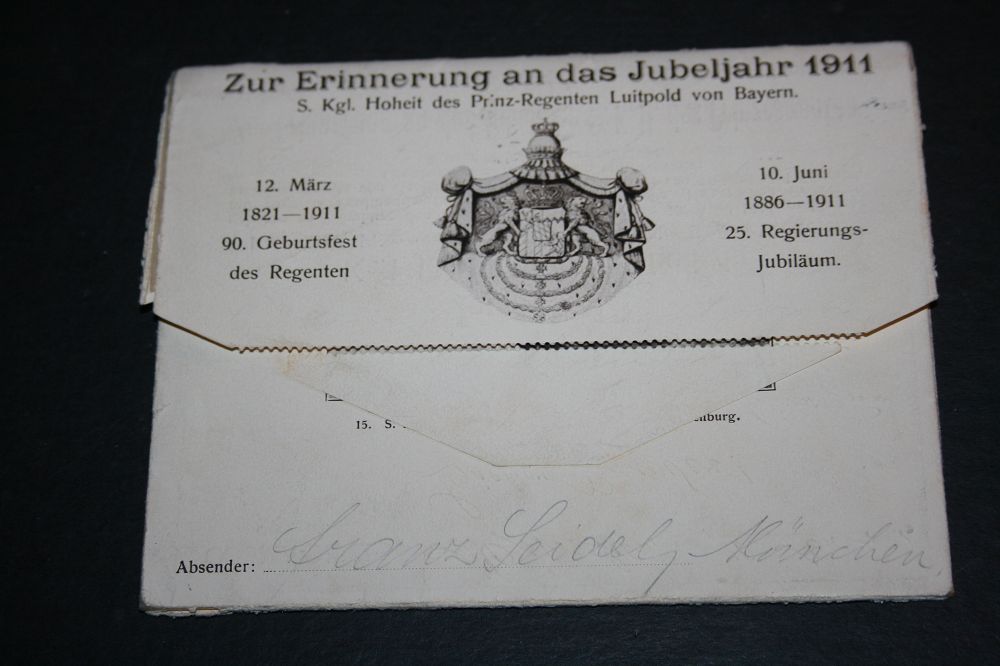 Zur Erinnerung an das Jubeljahr 1911
S. Kgl. Hoheit des Prinz-Regenten Luitpold von Bayern.
12. März
1821—1911
90. Geburtsfest
des Regenten
10. Juni
1886—1911
25. Regierungs-
Jubiläum.
15. S.
Absender: Franz Seidel, München